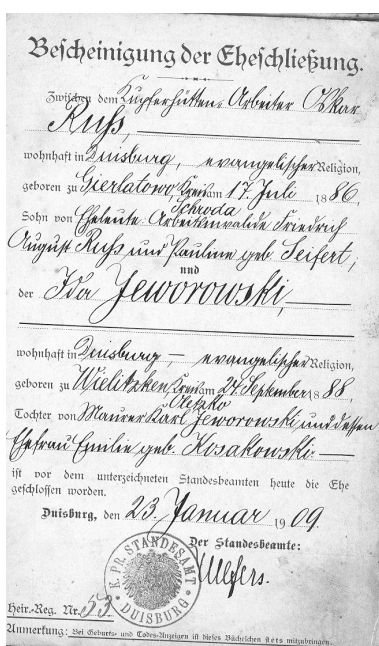 Bescheinigung der Eheschließung.
Zwischen dem Kupferhütten-Arbeiter Oskar
Ruß,
wohnhaft in Duisburg, evangelischer Religion,
geboren zu Gierlatowo, Kreis Schroda am 17. Juli 1886,
Sohn von Eheleute: Friedrich
August Ruß und Pauline geb. Seifert,
und
der Ida Jeworowski,
wohnhaft in Duisburg, – evangelischer Religion,
geboren zu Wielitzken, Kreis Oletzko am 27. September 1888
Tochter von Maurer Karl Jeworowski und dessen
Ehefrau Emilie geb. Kosakowski.
ist vor dem unterzeichneten Standesbeamten heute die Ehe
geschlossen worden.
Duisburg, den 23. Januar 1909.
Der Standesbeamte:
K. PR. STANDESAMT
DUISBURG
Heir.-Reg. Nr. 53
Anmerkung: Bei Geburts- und Todes-Anzeigen ist dieses Büchelchen stets mitzubringen.